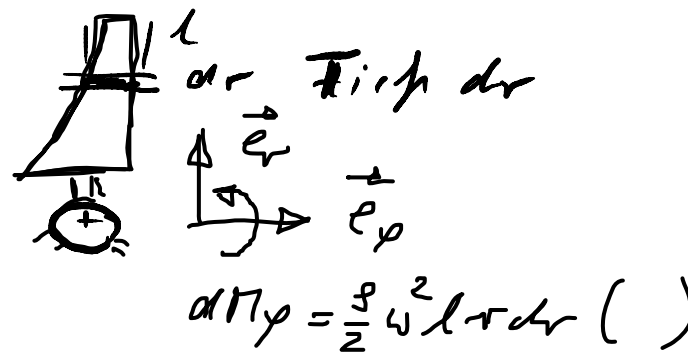 l
dr Tief dr
e⃗r
e⃗φ
dMφ = ρ/2 w² l r dr ( )